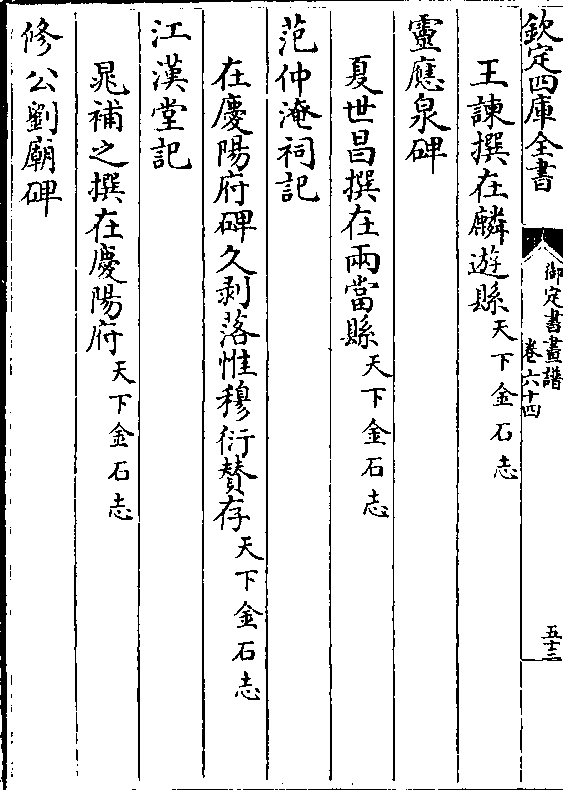 欽定四庫全書
御定書畫譜
卷六十四
五十三
王諫撰在麟遊縣天下金石志
靈應泉碑
夏世昌撰在兩當縣天下金石志
范仲淹祠記
在慶陽府碑久剥落惟穆衍賛存天下金石志
江漢堂記
晁補之撰在慶陽府天下金石志
修公劉廟碑